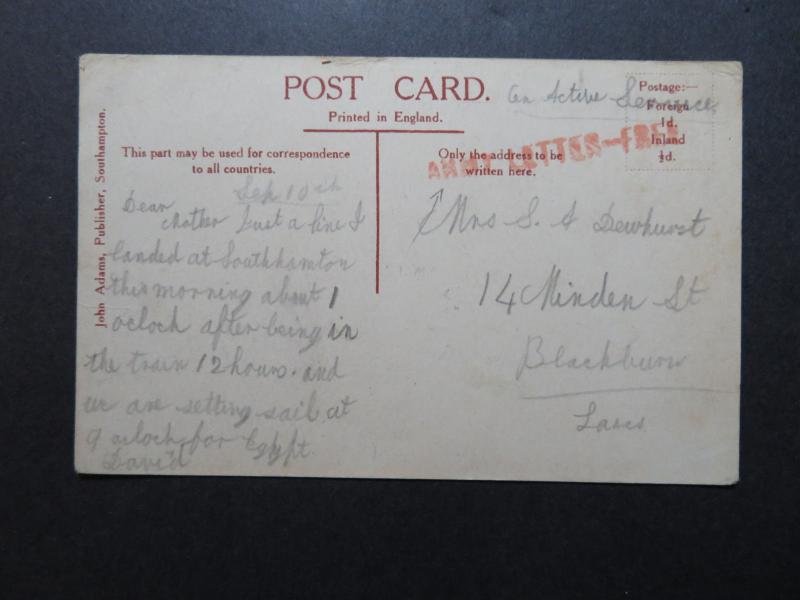 POST CARD.
Printed in England.
On Active Service
Postage:—
Foreign
1d.
Inland
½d.
ARMY LETTER—FREE
John Adams, Publisher, Southampton.
This part may be used for correspondence
to all countries.
Only the address to be
written here.
Sep 10th
Dear
Mother Just a line I
landed at Southhamton
this morning about 1
oclock after being in
the train 12 hours. and
we are setting sail at
9 oclock for Egypt.
David
Mrs S. A Dewhurst
14 Minden St
Blackburn
Lancs